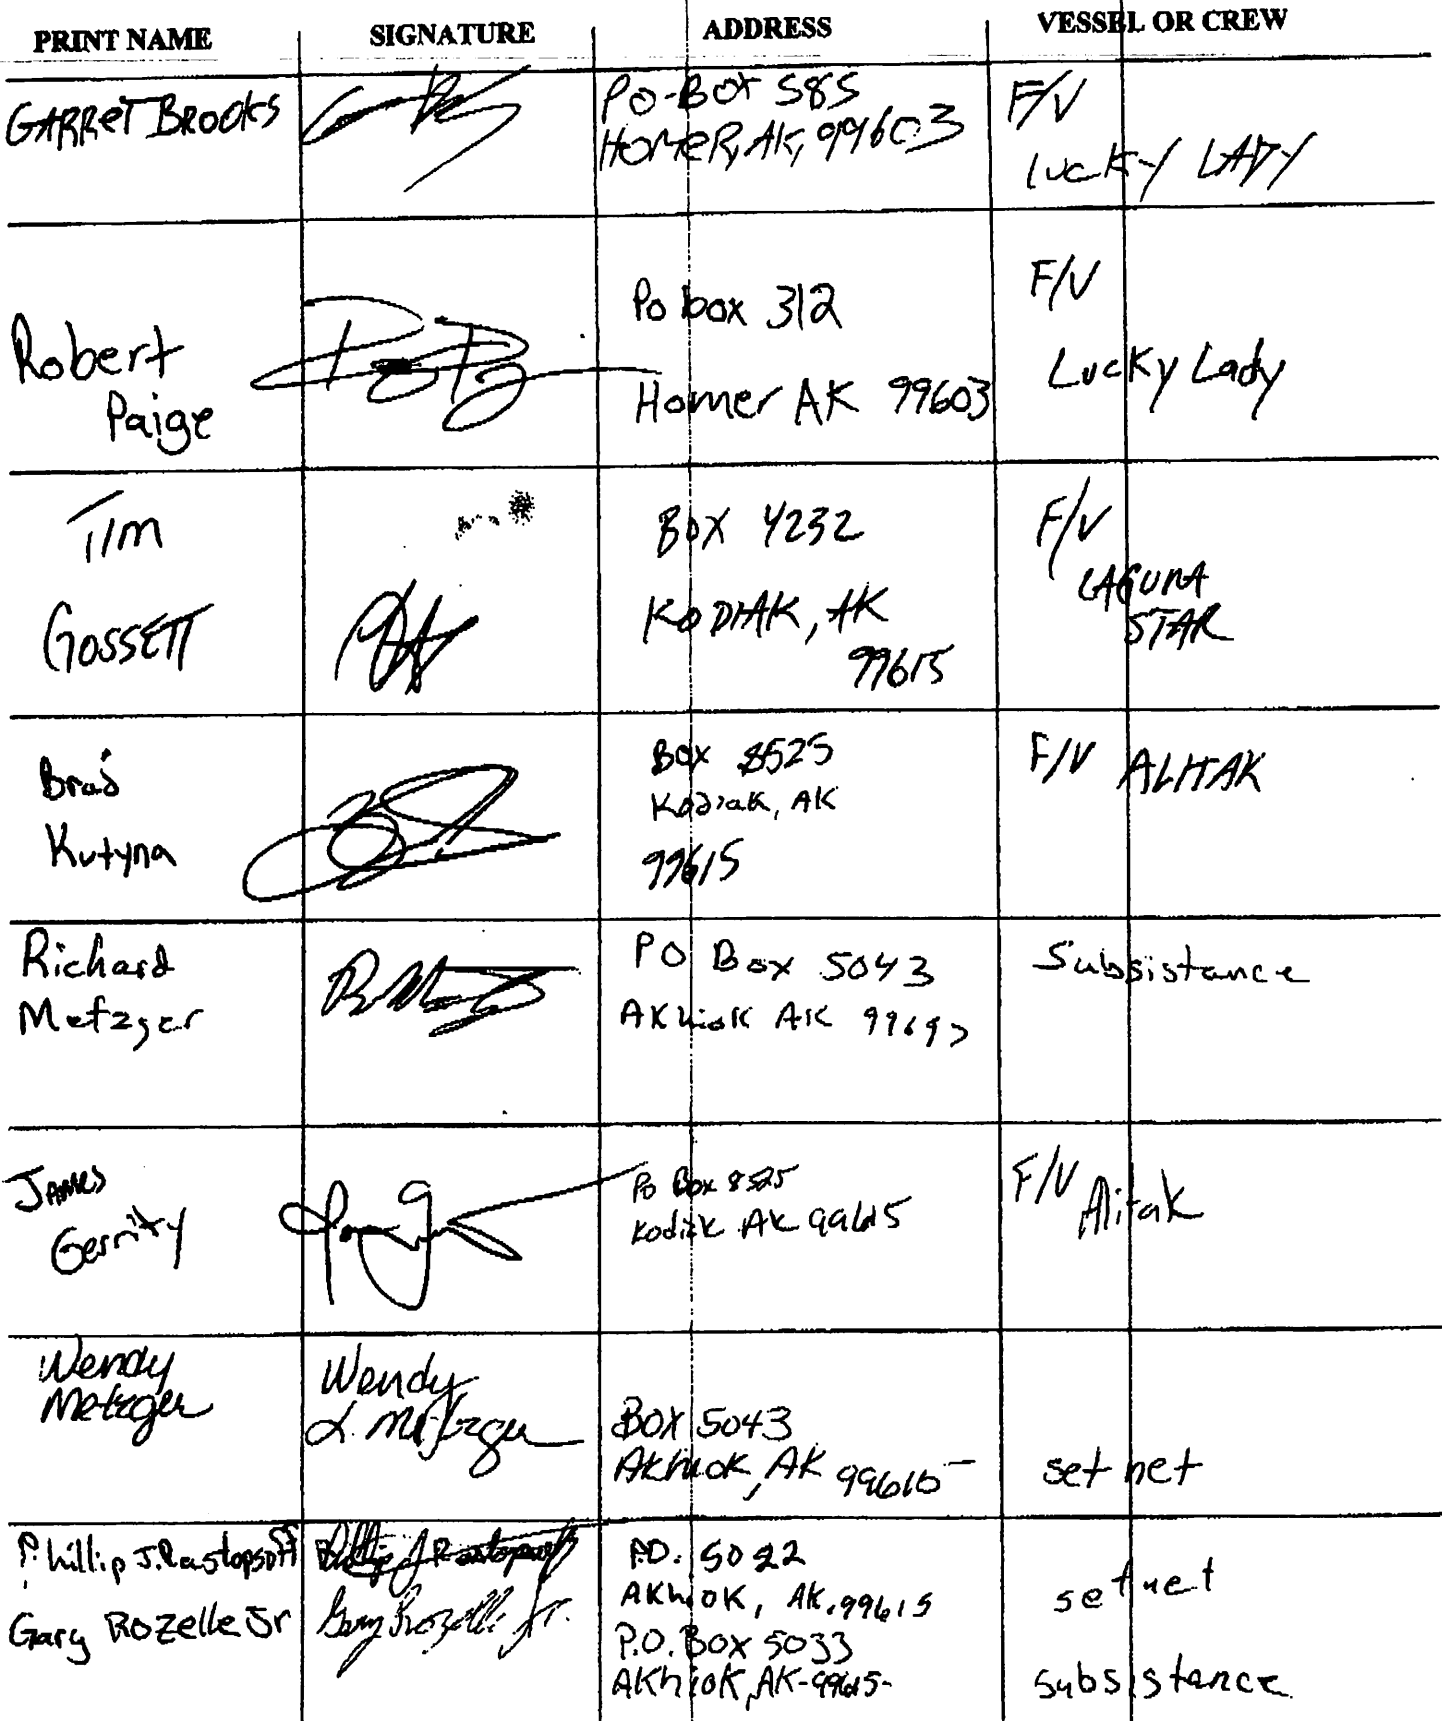 PRINT NAME SIGNATURE ADDRESS VESSEL OR CREW
GARRET BROOKS
PO-BOX 585
HOMER, AK, 99603
F/V
Lucky LADY
Robert
Paige
Po box 312
Homer AK 99603
F/V
Lucky Lady
TIM
GOSSETT
BOX 4232
KODIAK, AK
99615
F/V
LAGUNA
STAR
Brad
Kutyna
Box 8525
Kodiak, AK
99615
F/V ALITAK
Richard
Metzger
PO Box 5043
AKhioK AK
Subsistance
JAMES
Gerrity
Po Box 8525
Kodiak AK 99615
F/V Alitak
Wendy
Metzger
Wendy
L. Metzger
BOX 5043
AKhiok, AK
set net
Phillip J. Rastopsoff Phillip J Rastopsoff
P.O. 5022
AKhiOK, AK. 99615
set net
Gary Rozelle Jr Gary Rozelle Jr.
P.O. Box 5033
AKhioK, AK-99615-
subsistance